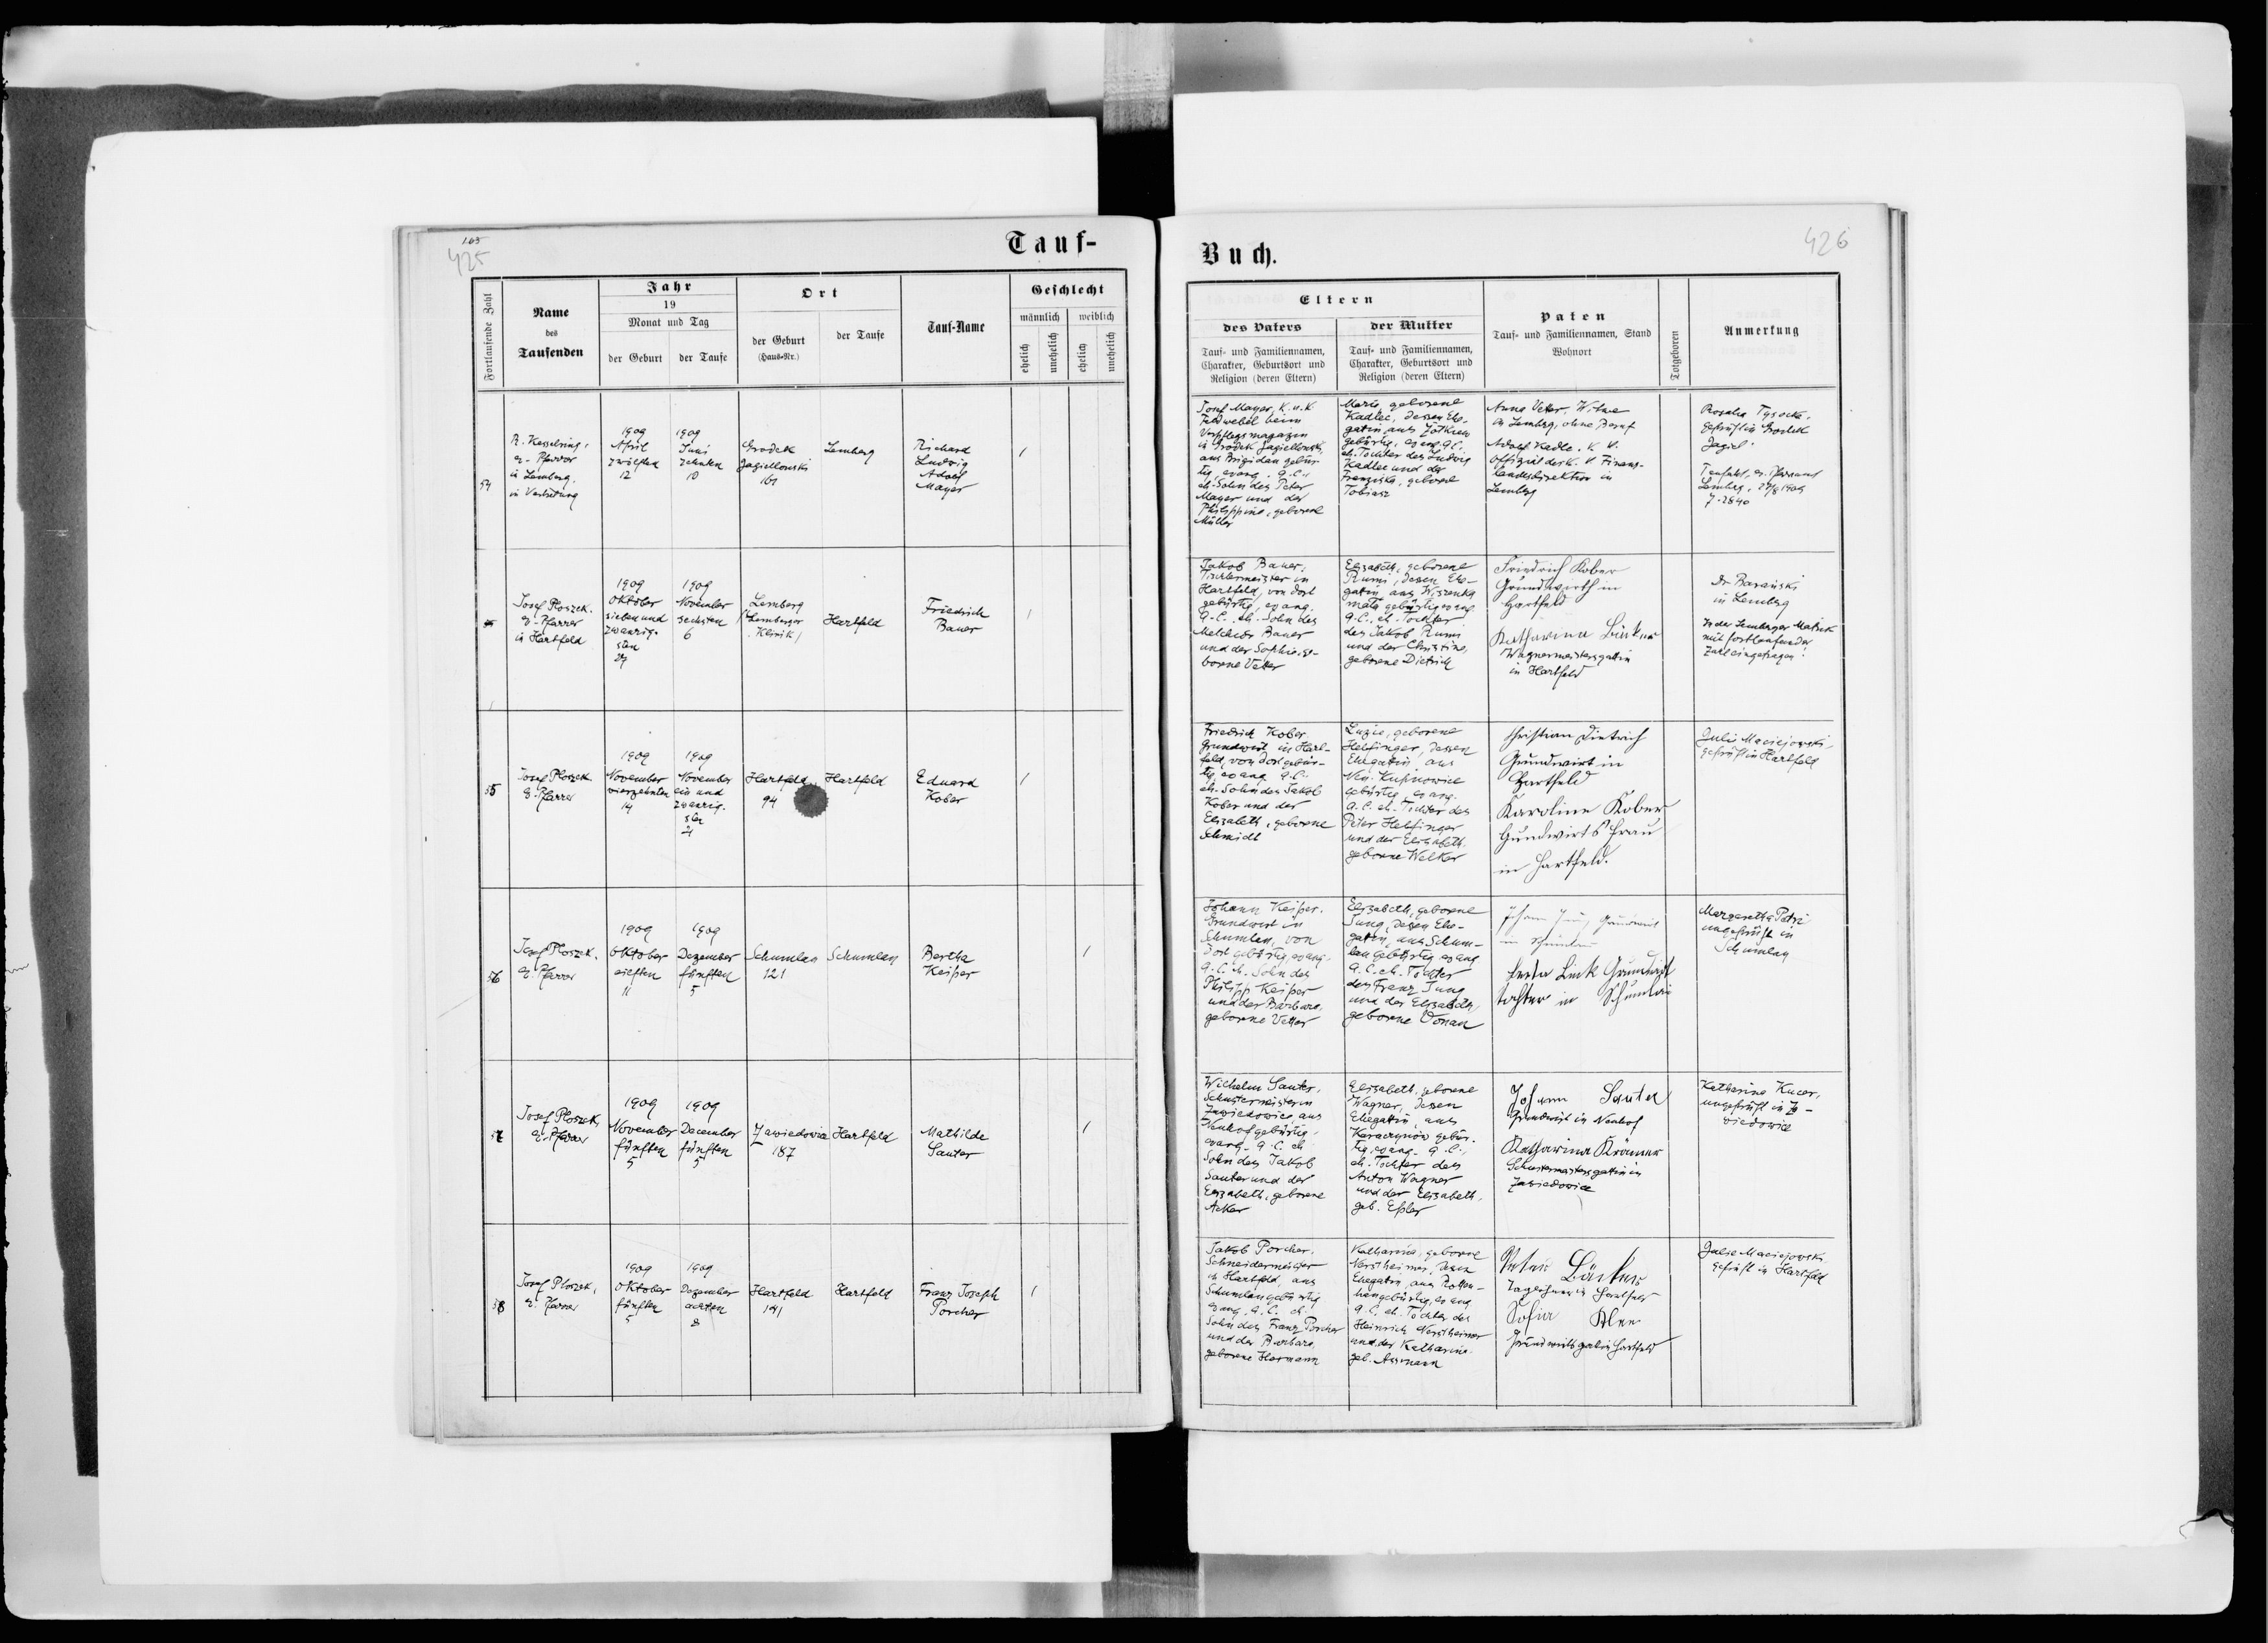 163
425
Tauf-
Fortlaufende Zahl
Name
des
Taufenden
Jahr
19
Monat und Tag
der Geburt
der Taufe
Ort
der Geburt
(Haus-Nr.)
der Taufe
Tauf-Name
Geschlecht
männlich
weiblich
ehelich
unehelich
ehelich
unehelich
54
R. Kesselring,
ev. Pfarrer
in Lemberg,
in Vertretung
1909
April
zwölften
12
1909
Juni
zehnten
10
Grodek
Jagiellonski
161
Lemberg
Richard
Ludwig
Adolf
Mayer
1
Josef Ploszek.
ev. Pfarrer
in Hartfeld
1909
Oktober
sieben und
zwanzig-
sten
27
1909
November
sechsten
6
Lemberg
Lemberger
Klinik)
Hartfeld
Friedrich
Bauer
1
55
Josef Ploszek
ev. Pfarrer
1909
November
vierzehnten
14
1909
November
ein und
zwanzig-
sten
21
Hartfeld
94
Hartfeld
Eduard
Kober
1
56
Josef Ploszek,
ev. Pfarrer
1909
Oktober
eilften
11
1909
Dezember
fünften
5
Schumlau
121
Schumlau
Bertha
Keiper
1
57
Josef Ploszek,
ev. Pfarrer
1909
November
fünften
5
1909
December
fünften
5
Zawiedowice
187
Hartfeld
Mathilde
Sauter
1
58
Josef Ploszek,
ev. Pfarrer
1909
Oktober
fünften
5
1909
Dezember
achten
8
Hartfeld
141
Hartfeld
Franz Joseph
Porcher
1
426
Buch.
Eltern
des Vaters
Tauf- und Familiennamen,
Charakter, Geburtsort und
Religion (deren Eltern)
der Mutter
Tauf- und Familiennamen,
Charakter, Geburtsort und
Religion (deren Eltern)
Paten
Tauf- und Familiennamen, Stand
Wohnort
Totgeboren
Anmerkung
Josef Mayer, K. u. K.
Feldwebel beim
Verpflegsmagazin
in Grodek Jagiellonski,
aus Brigidau gebür-
tig, evang. A.C.,
eh. Sohn des Peter
Mayer und der
Philippine, geborene
Müller
Marie, geborene
Kadlec, dessen Ehe-
gatin, aus Zolkiew
gebürtig, evang. A.C.,
eh. Tochter des Ludwig
Kadlec und der
Franziska, geborene
Tobiasz
Anna Vetter, Witwe
in Lemberg, ohne Beruf
Adolf Kadle, K. K.
Offizial der K. K. Finanz-
landesdirektion in
Lemberg
Rosalia Tysocka,
geprüft in Grodek
Jagiel.
Taufakt, ev. Pfarramt
Lemberg, 27/8 1909
Z. 2840
Jakob Bauer,
Tischlermeister in
Hartfeld, von dort
gebürtig, evang.
A.C., eh. Sohn des
Melchior Bauer
und der Sophie, ge-
borene Vetter
Elisabeth, geborene
Rumi, dessen Ehe-
gatin, aus Wiszenka
mala gebürtig, evang.
A.C., eh. Tochter
des Jakob Rumi
und der Christine,
geborene Dietrich
Friedrich Kober
Grundwirth in
Hartfeld
Katharina
Wagnermeistersgattin
in Hartfeld
Dr Barański
in Lemberg
In der Lemberger Matrik
mit fortlaufender
Zahl eingetragen!
Friedrich Kober,
Grundwirt in Hart-
feld, von dort gebür-
tig, evang. A.C.
eh. Sohn des Jakob
Kober und der
Elisabeth, geborene
Schmidt
Luzie, geborene
Helfinger, dessen
Ehegatin, aus
Neu-Kupnowice
gebürtig, evang.
A.C. eh. Tochter des
Peter Helfinger
und der Elisabeth
geborene Welker
Christian Dietrich
Grundwirt in
Hartfeld
Karoline Kober
Gundwirts frau
in Hartfeld.
Julie Maciejowski,
geprüft in Hartfeld
Johann Keiper,
Grundwirt in
Schumlau, von
dort gebürtig, evang.
A.C. eh. Sohn des
Philipp Keiper
und der Barbara,
geborene Vetter
Elisabeth, geborene
Jung, dessen Ehe-
gatin, aus Schum-
lau gebürtig, evang
A.C. eh. Tochter
des Franz Jung
und der Elisabeth,
geborene Donau
Johann Jung, Grundwirt
in Schumlau
Grundwirt
tochter in Schumlau
Margaretha Petri
ungeprüft in
Schumlau
Wilhelm Sauter,
Schustermeister in
Zawiedowice, aus
Neuhof gebürtig,
evang. A.C. eh.
Sohn des Jakob
Sauter und der
Elisabeth, geborene
Acker
Elisabeth, geborene
Wagner, dessen
Ehegattin, aus
Karaczynow gebür-
tig, evang. A.C.,
eh. Tochter des
Anton Wagner
und der Elisabeth,
geb. Eßler
Johann Sauter
Grundwirt in Neuhof
Katharina Krämer
Schustermeistersgattin in
Zawiedowice
Katharina Kucer,
ungeprüft in Za-
wiedowice
Jakob Porcher,
Schneidermeister
in Hartfeld, aus
Schumlau gebürtig
evang. A.C. eh.
Sohn des Franz Porcher
und der Barbara,
geborene Hermann
Katharina, geborene
Nerstheimer, dessen
Ehegatin, aus Rotten-
han gebürtig, evang
A.C. eh. Tochter des
Heinrich Nerstheimer
und der Katharina,
geb. Assmann
Peter Bäcker
Taglöhner in Hartfeld
Sofia Klee
Grundwirtsgatin Hartfeld
Julie Maciejowski
geprüft in Hartfeld